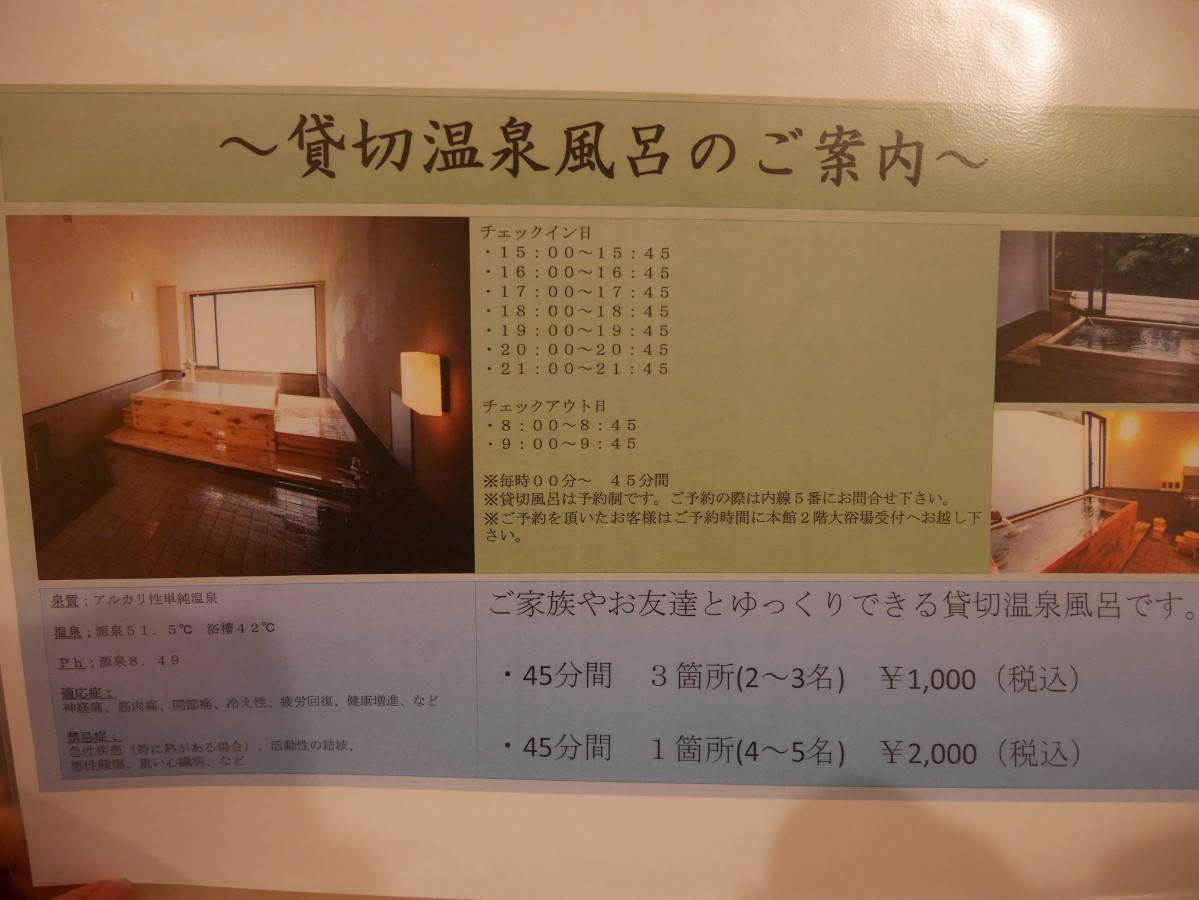 ～貸切温泉風呂のご案内～
チェックイン日
・１５：００～１５：４５
・１６：００～１６：４５
・１７：００～１７：４５
・１８：００～１８：４５
・１９：００～１９：４５
・２０：００～２０：４５
・２１：００～２１：４５
チェックアウト日
・８：００～８：４５
・９：００～９：４５
※毎時００分～　４５分間
※貸切風呂は予約制です。ご予約の際は内線５番にお問合せ下さい。
※ご予約を頂いたお客様はご予約時間に本館２階大浴場受付へお越し下
さい。
泉質；アルカリ性単純温泉
温泉；源泉５１．５℃　浴槽４２℃
Ｐｈ；源泉８．４９
適応症；
神経痛、筋肉痛、関節痛、冷え性、疲労回復、健康増進、など
禁忌症；
急性疾患（特に熱がある場合）、活動性の結核、
悪性腫瘍、重い心臓病、など
ご家族やお友達とゆっくりできる貸切温泉風呂です。
・45分間　３箇所(2～3名)　￥1,000（税込）
・45分間　１箇所(4～5名)　￥2,000（税込）